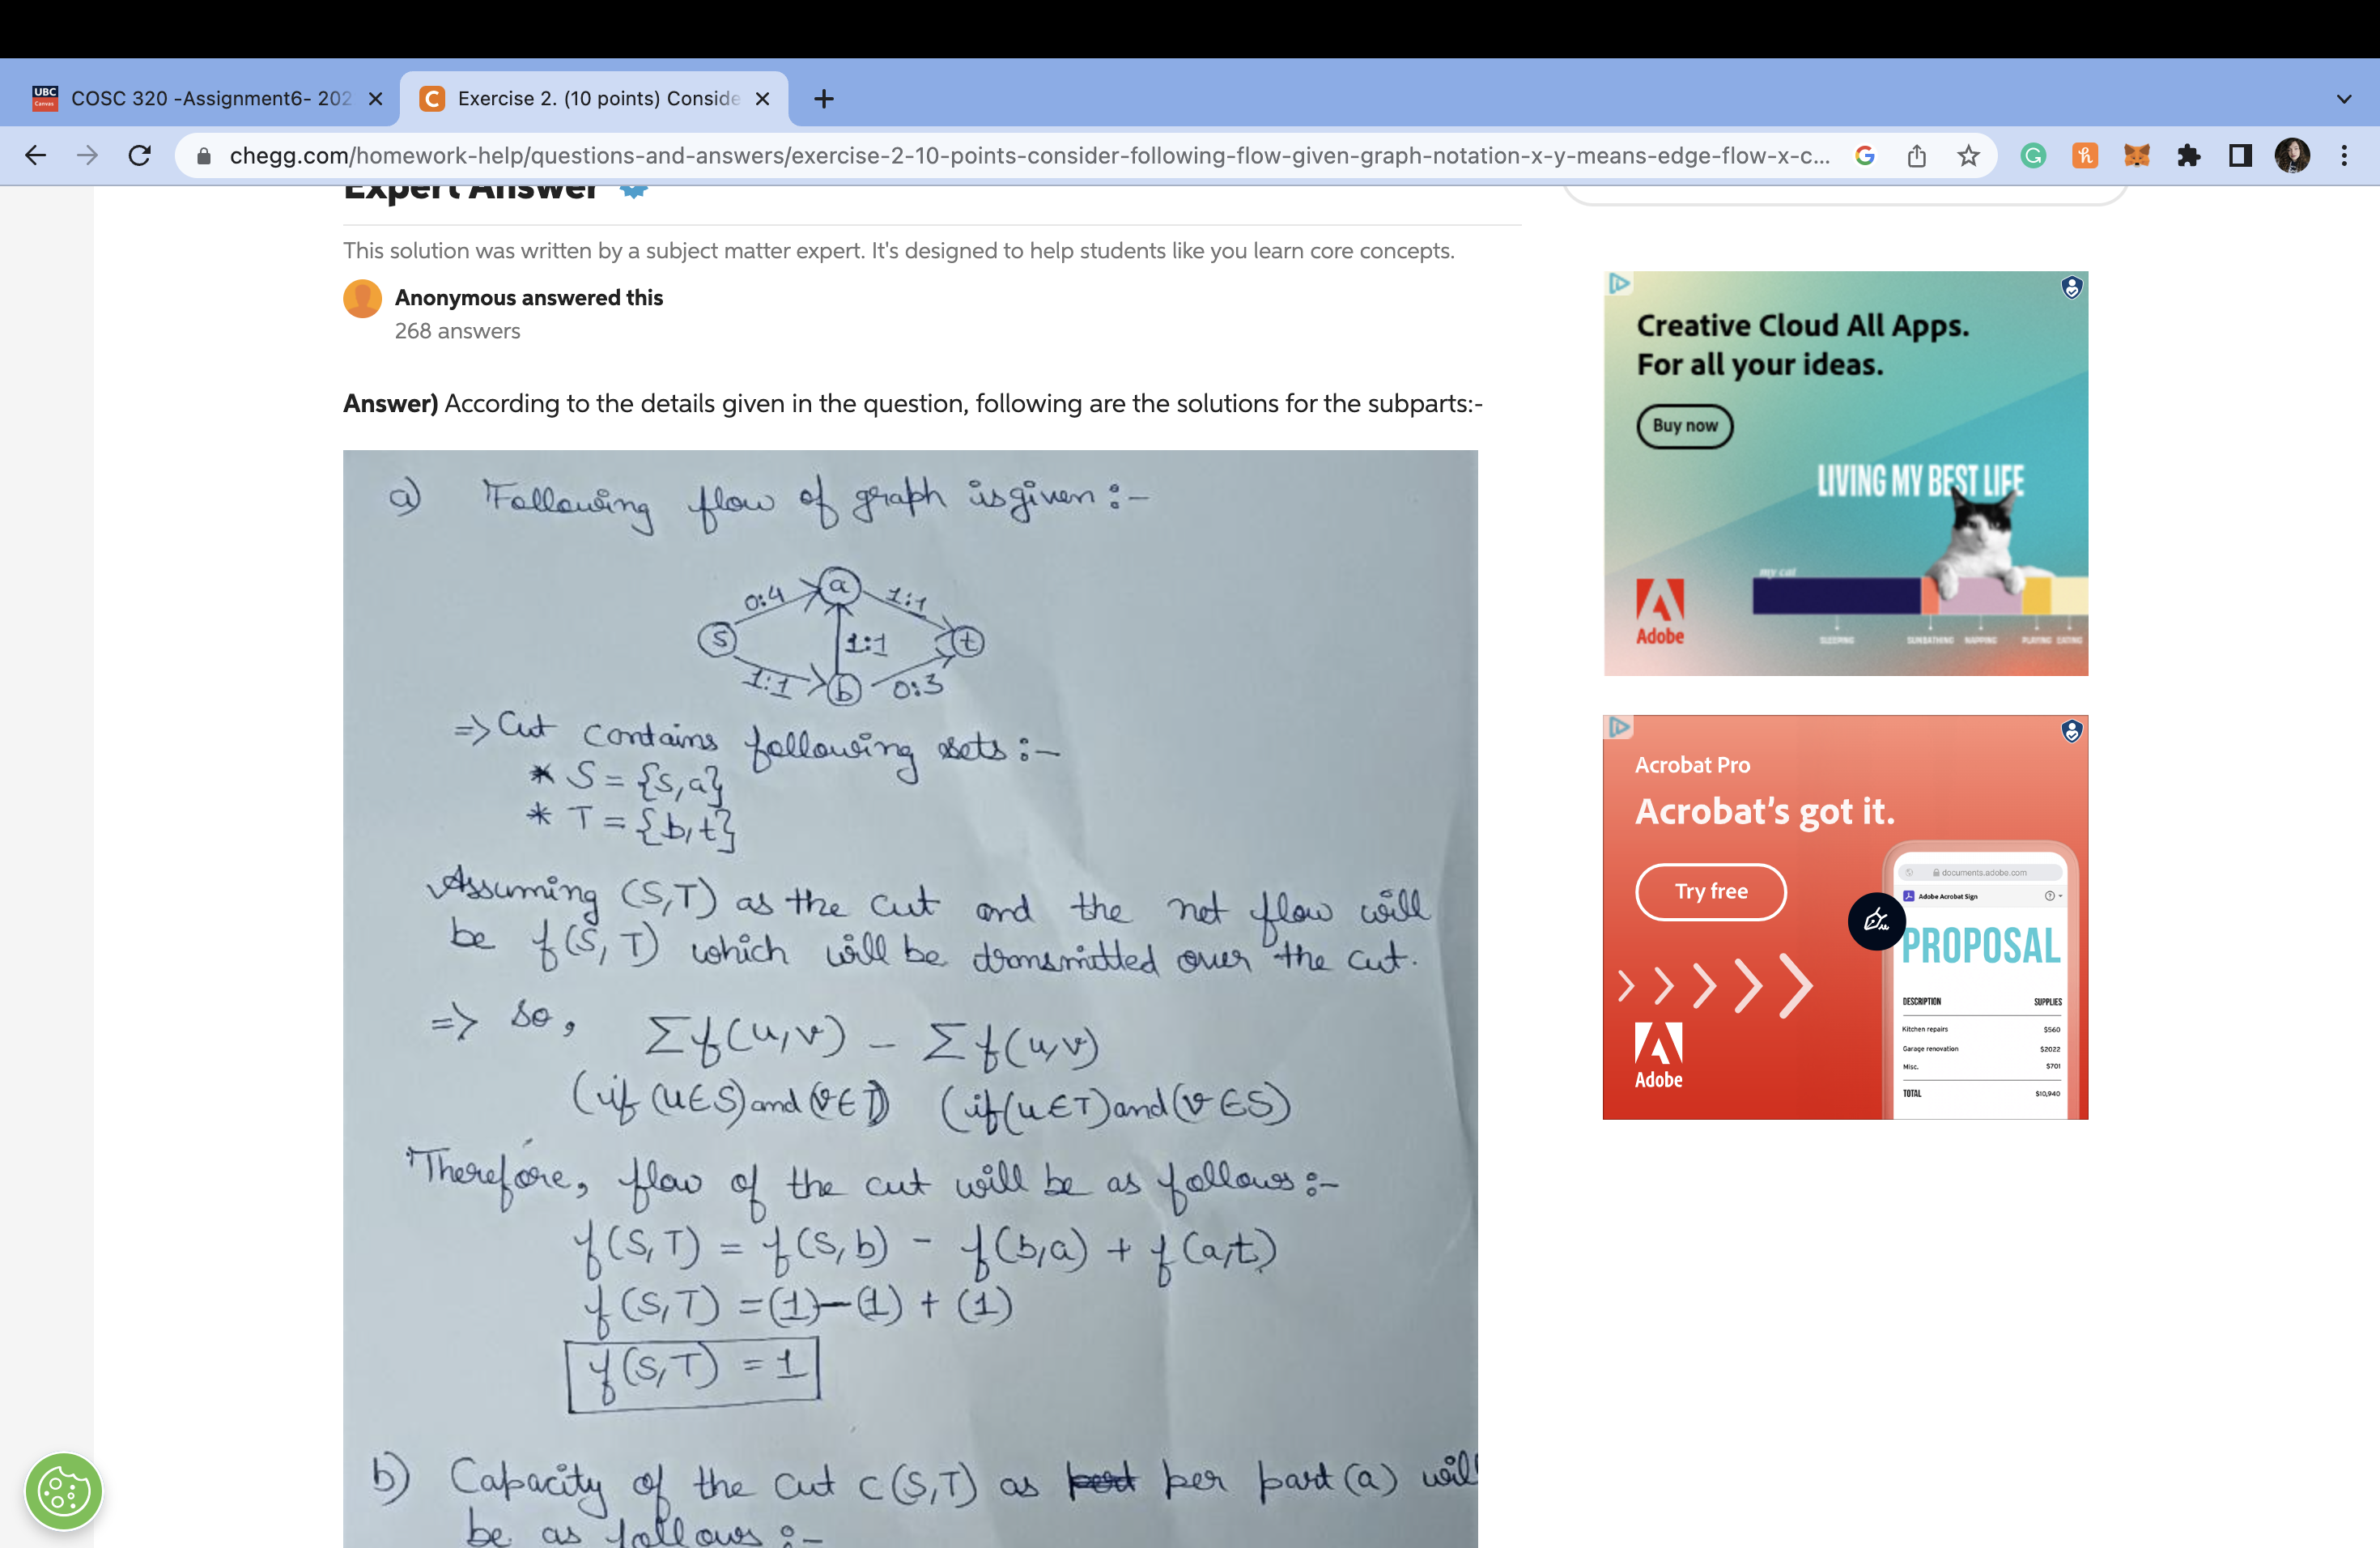 UBC
Canvas
COSC 320 -Assignment6- 202
Exercise 2. (10 points) Conside
chegg.com/homework-help/questions-and-answers/exercise-2-10-points-consider-following-flow-given-graph-notation-x-y-means-edge-flow-x-c...
Expert Answer
This solution was written by a subject matter expert. It's designed to help students like you learn core concepts.
Anonymous answered this
268 answers
Answer) According to the details given in the question, following are the solutions for the subparts:-
a) Following flow of graph is given :-
a
0:4
1:1
s
1:1
t
1:1
b
0:3
=> Cut contains following sets :-
* S = {s,a}
* T = {b,t}
Assuming (S,T) as the cut and the net flow will
be f(S,T) which will be transmitted over the cut.
=> So, Σf(u,v) - Σf(u,v)
(if (u∈S) and (v∈T) (if(u∈T) and (v∈S)
Therefore, flow of the cut will be as follows :-
f(S,T) = f(S,b) - f(b,a) + f(a,t)
f(S,T) = (1)-(1) + (1)
f(S,T) = 1
b) Capacity of the cut c(S,T) as per part (a) will
be as follows :-
Creative Cloud All Apps.
For all your ideas.
Buy now
LIVING MY BEST LIFE
my cat
Adobe
SLEEPING SUNBATHING NAPPING PLAYING EATING
Acrobat Pro
Acrobat's got it.
Try free
documents.adobe.com
Adobe Acrobat Sign
PROPOSAL
DESCRIPTION SUPPLIES
Kitchen repairs $560
Garage renovation $2022
Misc. $701
TOTAL $10,940
Adobe